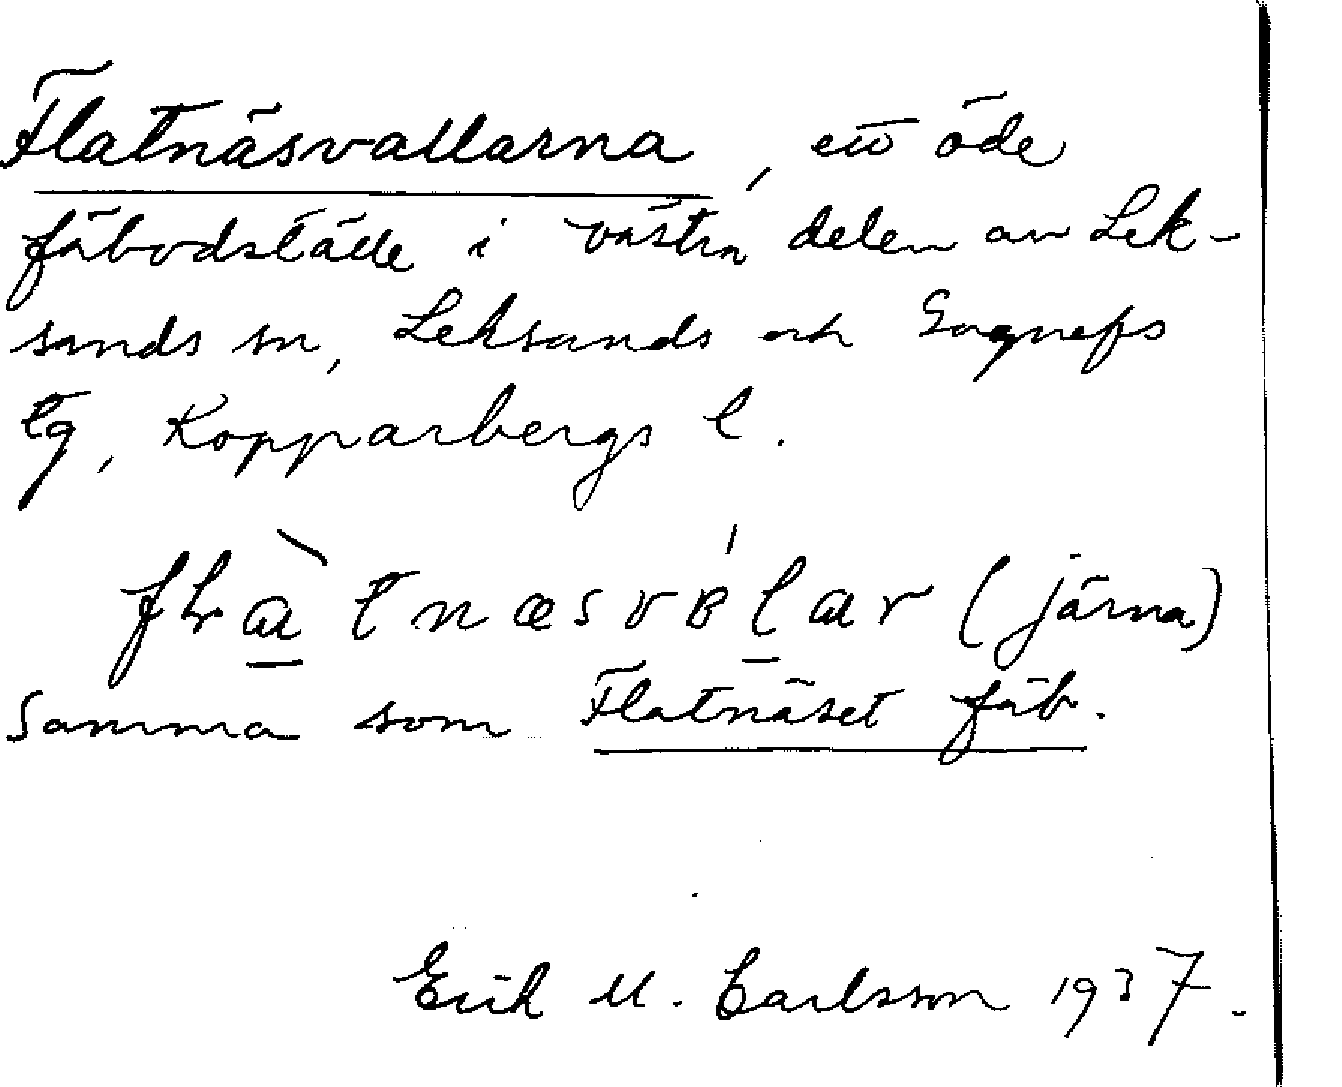 Flatnäsvallarna, ett öde
fäbodställe i västra delen av Lek-
sands sn, Leksands och Gagnefs
tg, Kopparbergs l.
(järna)
Samma som Flatnäset fäb.
Erik M. Carlsson 1937.